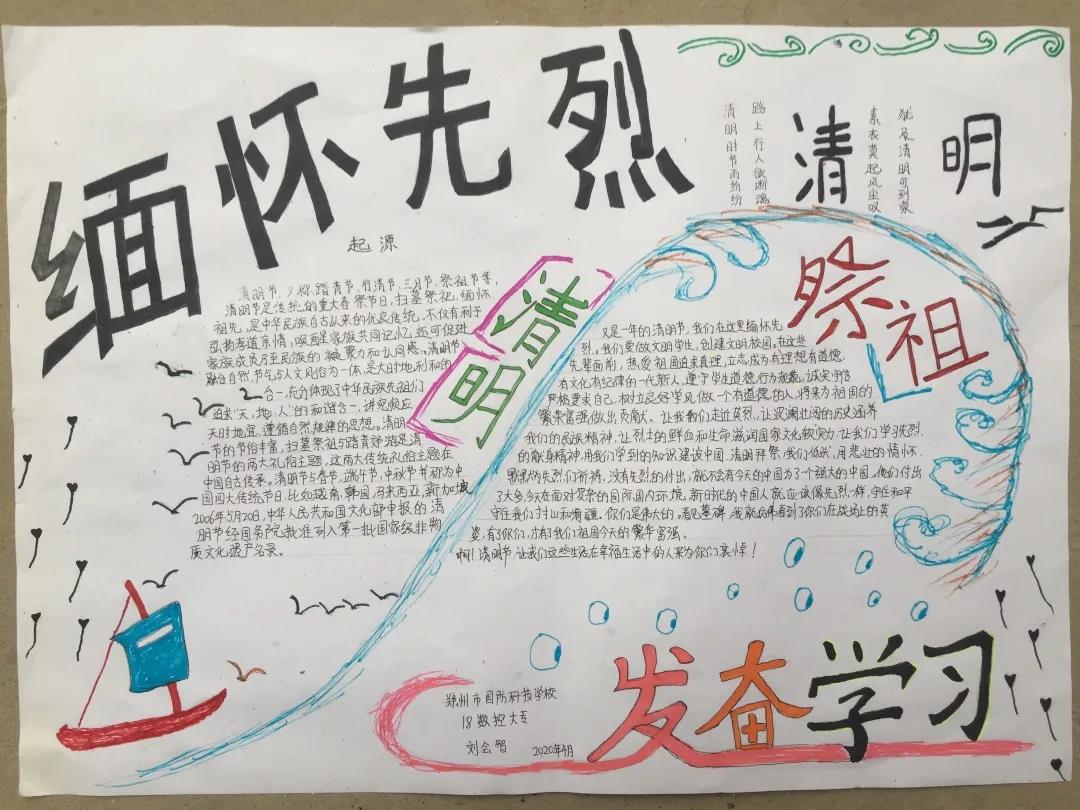 缅怀先烈
清明
路上行人欲断魂
清明时节雨纷纷
犹及清明可到家
素衣莫起风尘叹
起源
清明节,又称踏青节,行清节,三月节,祭祖节等,
清明节是传统的重大春祭节日,扫墓祭祀,缅怀
祖先,是中华民族自古以来的优良传统,不仅有利于
弘扬孝道亲情,唤醒家族共同记忆,还可促进
家族成员乃至民族的凝聚力和认同感。清明节
融合自然节气与人文风俗为一体,是天时地利和的
合一,充分体现了中华民族先祖们
追求"天,地,人"的和谐合一,讲究顺应
天时地宜,遵循自然规律的思想。清明
节的节俗丰富,扫墓祭祖与踏青郊游是清
明节的两大礼俗主题,这两大传统礼俗主题在
中国自古传承。清明节与春节,端午节,中秋节并称为中
国四大传统节日,比如越南,韩国,马来西亚,新加坡
2006年5月20日,中华人民共和国文化部申报的清
明节经国务院批准列入第一批国家级非物
质文化遗产名录。
清明
祭祖
又是一年的清明节,我们在这里缅怀先
烈。我们要做文明学生,创建文明校园。在这些
先辈面前,热爱祖国追求真理,立志成为有理想有道德,
有文化有纪律的一代新人,遵守学生道德行为规范,诚实守信
严格要求自己,树立良好学风,做一个有道德的人,将来为祖国的
繁荣富强做出贡献、让我们走近英烈,让波澜壮阔的历史涵养
我们的民族精神,让烈士的鲜血和生命滋润国家文化软实力,让我们学习先烈,
的献身精神,用我们学到的知识建设中国,清明拜祭,我们低头,用悲壮的情怀,
默默为先烈们祈祷,没有先烈的付出,就不会有今天的中国,为了个强大的中国,他们付出
了太多,今天在面对复杂的国际国内环境,新时代的中国人就应该像先烈一样,守住和平
守住我们的山和海疆。你们是伟大的。看见墓碑,我就仿佛看到了你们在战场上的英
姿,有了你们,才有我们祖国今天的繁华富强。
啊!清明节,让我们这些生活在幸福生活中的人来为你们哀悼!
发奋学习
郑州市国防科技学校
18数控大专
刘会智 2020年4月